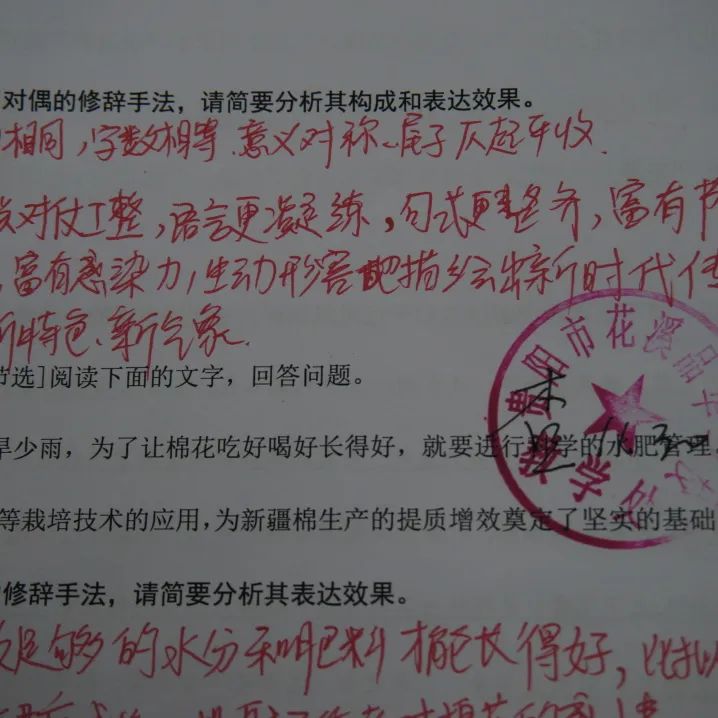 对偶的修辞手法，请简要分析其构成和表达效果。
相同，字数相等、意义对称、尾字仄起平收.
对仗工整，语言更凝练，句式更整齐，富有节
，富有感染力，生动形容地描绘出新时代
新特色、新气象.
节选]阅读下面的文字，回答问题。
旱少雨，为了让棉花吃好喝好长得好，就要进行学的水肥管理
等栽培技术的应用，为新疆棉生产的提质增效奠定了坚实的基础
贵阳市花溪品
修辞手法，请简要分析其表达效果。
足够的水分和肥料才能长得好，比拟